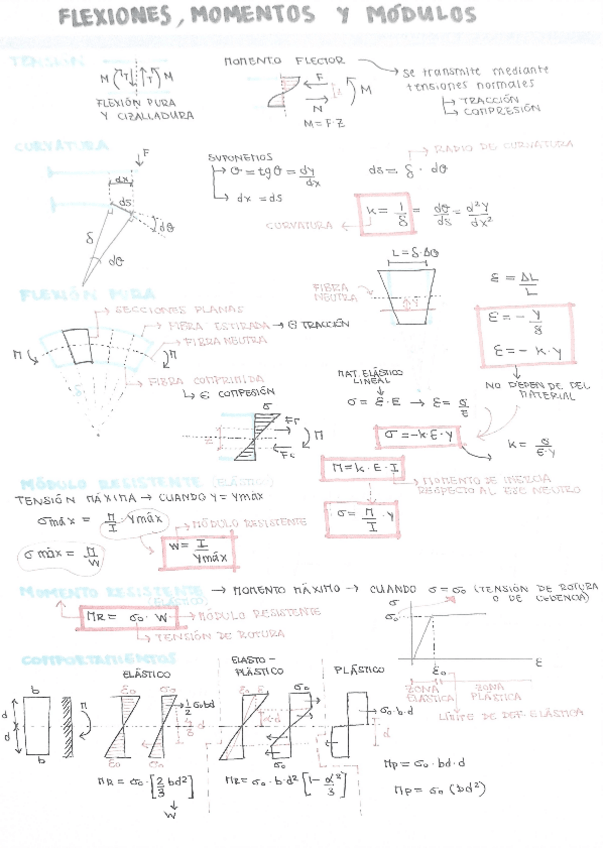 FLEXIONES, MOMENTOS Y MÓDULOS
TENSIÓN
M T T M
FLEXIÓN PURA
Y CIZALLADURA
MOMENTO FLECTOR
F
M
N
M = F·Z
→ se transmite mediante
tensiones normales
↳ TRACCIÓN
↳ COMPRESIÓN
CURVATURA
F
dx
ds
dθ
δ
dθ
SUPONEMOS
↳ θ = tgθ = dy/dx
↳ dx = ds
→ RADIO DE CURVATURA
ds = δ · dθ
CURVATURA ← K = 1/δ = dθ/ds = d²y/dx²
FLEXIÓN PURA
→ SECCIONES PLANAS
→ FIBRA ESTIRADA → ⊕ TRACCIÓN
→ FIBRA NEUTRA
M M
→ FIBRA COMPRIMIDA
↳ ⊖ COMPESIÓN
L = δ·Δθ
FIBRA
NEUTRA
y
ε = ΔL/L
ε = - y/δ
ε = - K·y
NO DEPENDE DEL
MATERIAL
MAT. ELÁSTICO
LINEAL
σ = ε·E → ε = σ/E
σ = -K·E·y
K = σ/E·y
σ
FT
Fc
M
M = K·E·I
→ MOMENTO DE INERCIA
RESPECTO AL EJE NEUTRO
σ = M/I · y
MÓDULO RESISTENTE (ELÁSTICO)
TENSIÓN MÁXIMA → CUANDO y = ymáx
σmáx = M/I · ymáx
→ MÓDULO RESISTENTE
σmáx = M/W
W = I/ymáx
MOMENTO RESISTENTE → MOMENTO MÁXIMO → CUANDO σ = σ₀ (TENSIÓN DE ROTURA
(ELÁSTICO)
O DE CEDENCIA)
MR = σ₀ · W → MÓDULO RESISTENTE
→ TENSIÓN DE ROTURA
σ
σ₀
ε₀
ε
ZONA
ELÁSTICA
ZONA
PLÁSTICA
LÍMITE DE DEF. ELÁSTICA
COMPORTAMIENTOS
ELÁSTICO
ELASTO-
PLÁSTICO
PLÁSTICO
b
d
d
b
M
ε₀ σ₀
1/2 σ₀bd
4/3 d
ε₀ σ₀
σ₀
σ₀·b·d
d
MR = σ₀ · [2/3 bd²]
W
MR = σ₀·b·d² [1 - α²/3]
Mp = σ₀·bd·d
Mp = σ₀ (bd²)